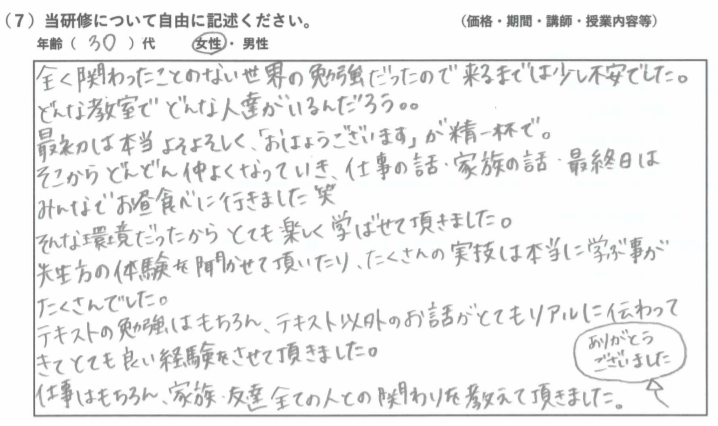 (7) 当研修について自由に記述ください。 (価格・期間・講師・授業内容等)
年齢(30)代 女性・男性
全く関わったことのない世界の勉強だったので来るまでは少し不安でした。
どんな教室でどんな人達がいるんだろう。。
最初は本当よそよそしく、「おはようございます」が精一杯で。
そこからどんどん仲よくなっていき、仕事の話・家族の話・最終日は
みんなでお昼食べに行きました笑
そんな環境だったからとても楽しく学ばせて頂きました。
先生方の体験を聞かせて頂いたり、たくさんの実技は本当に学ぶ事が
たくさんでした。
テキストの勉強はもちろん、テキスト以外のお話がとてもリアルに伝わって
きてとても良い経験をさせて頂きました。
仕事はもちろん、家族・友達全ての人との関わりを教えて頂きました。
ありがとう
ございました